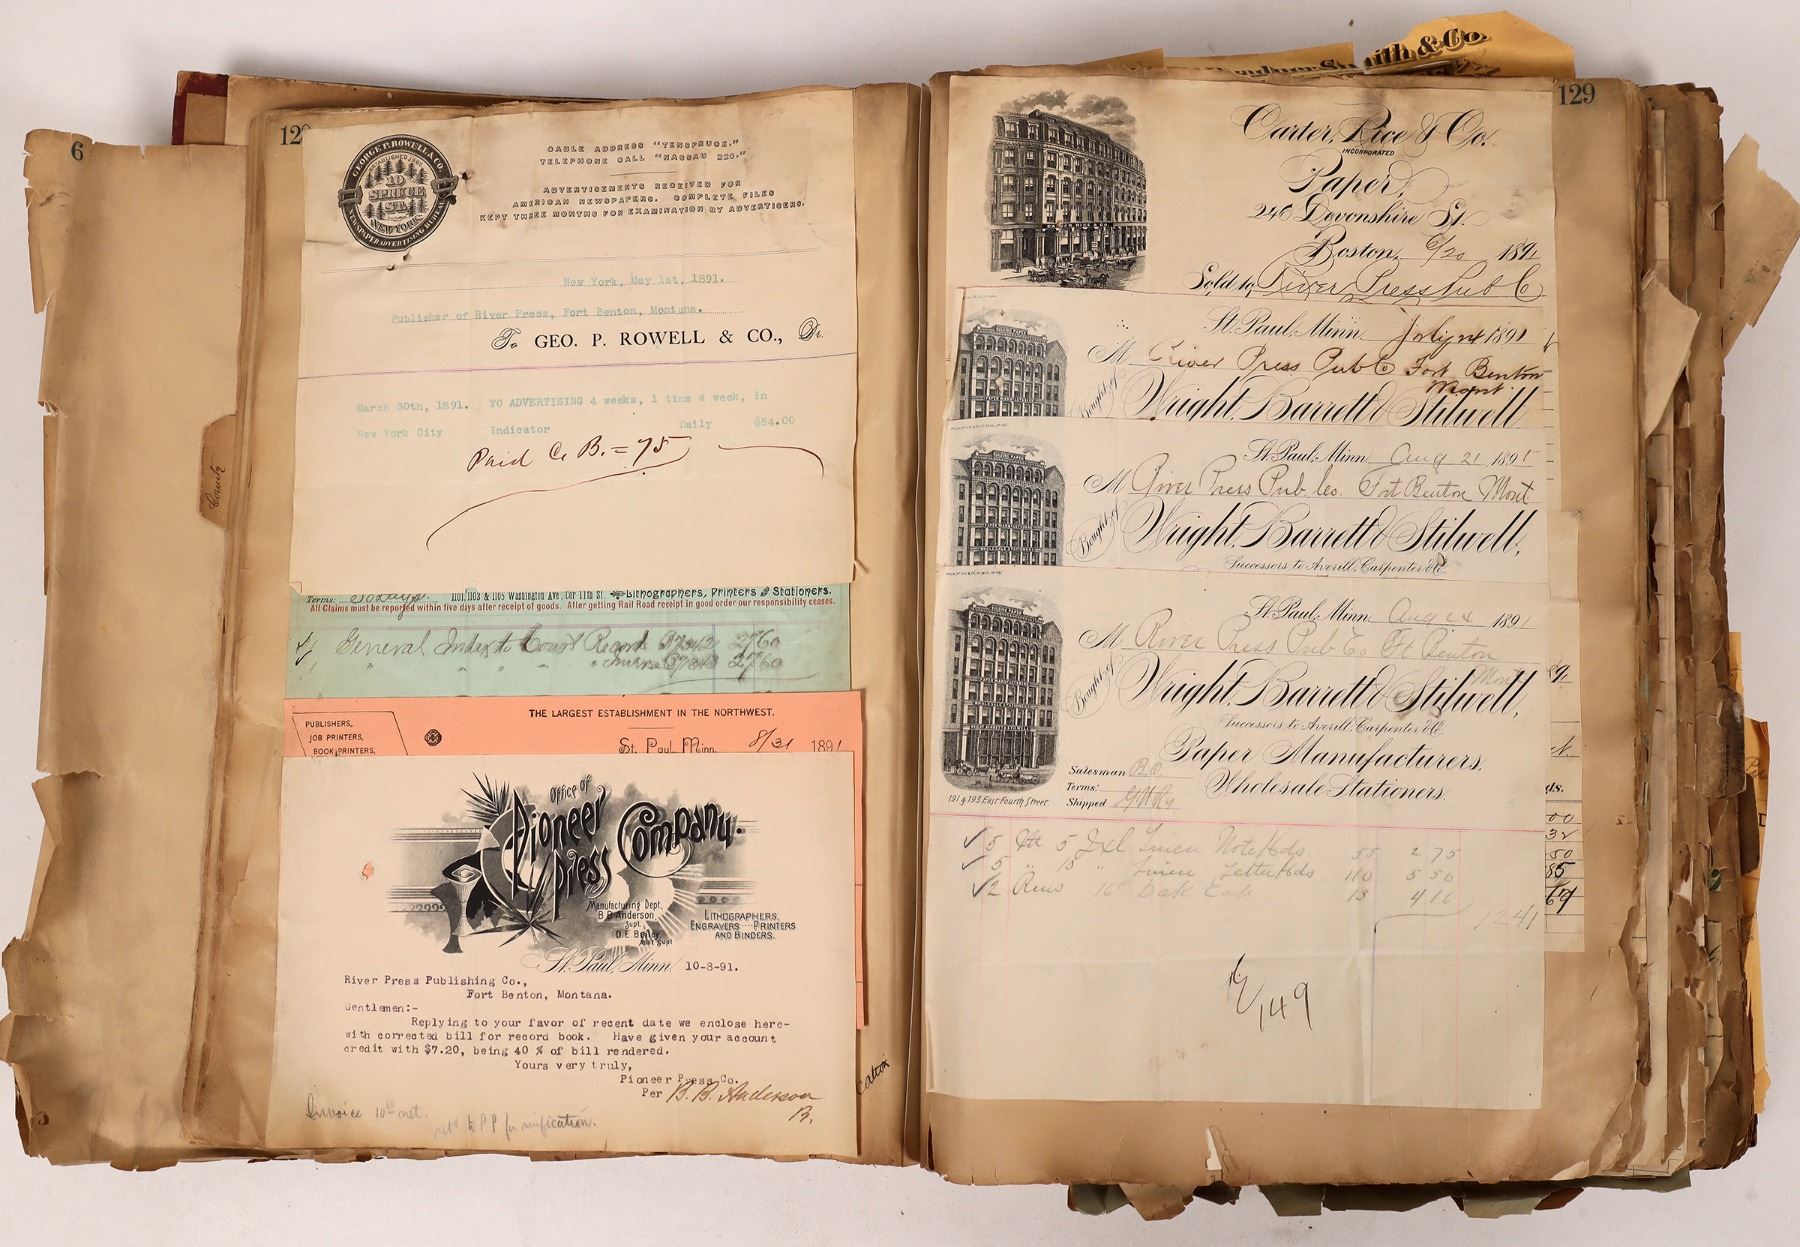 6
12
GEORGE P. ROWELL & CO.
ESTABLISHED 1865
10
SPRUCE
ST.
NEW YORK
NEWSPAPER ADVERTISING BUREAU
CABLE ADDRESS "TENSPRUCE."
TELEPHONE CALL "NASSAU 226."
ADVERTISEMENTS RECEIVED FOR
AMERICAN NEWSPAPERS. COMPLETE FILES
KEPT THREE MONTHS FOR EXAMINATION BY ADVERTISERS.
New York, May 1st, 1891.
Publisher of River Press, Fort Benton, Montana.
To GEO. P. ROWELL & CO., Dr.
March 30th, 1891. TO ADVERTISING 4 weeks, 1 time a week, in
New York City Indicator Daily $54.00
Paid C. B. = 75
County
Terms: 30 days. 1101, 1103 & 1105 Washington Ave., Cor 11th St. Lithographers, Printers and Stationers.
All Claims must be reported within five days after receipt of goods. After getting Rail Road receipt in good order our responsibility ceases.
General Index to Court Record 37342 27 60
" " " " 37343 27 60
PUBLISHERS,
JOB PRINTERS,
BOOK PRINTERS,
THE LARGEST ESTABLISHMENT IN THE NORTHWEST.
St. Paul, Minn. 8/31 1891
Office of
Pioneer Press Company.
Manufacturing Dept.
B.B. Anderson,
Supt.
D.E. Bailey,
Asst Supt
LITHOGRAPHERS,
ENGRAVERS PRINTERS
AND BINDERS.
St. Paul, Minn. 10-8-91.
River Press Publishing Co.,
Fort Benton, Montana.
Gentlemen:-
Replying to your favor of recent date we enclose here-
with corrected bill for record book. Have given your account
credit with $7.20, being 40 % of bill rendered.
Yours very truly,
Pioneer Press Co.
Per B. B. Anderson
B.
Invoice 10% net.
ret'd to P P for verification.
Smith & Co.
129
Carter, Rice & Co.
INCORPORATED
Paper,
246 Devonshire St.
Boston, 6/20 1891
Sold to River Press Pub Co
BUILDING PAPER
St. Paul, Minn. July 1891
M River Press Pub Co Fort Benton
Mont
Bought of Wright, Barrett & Stilwell
BUILDING PAPER
St. Paul, Minn. Aug 21 1891
M River Press Pub Co. Fort Benton Mont
Bought of Wright, Barrett & Stilwell,
Successors to Averill, Carpenter & Co.
St. Paul, Minn. Aug 24 1891
M River Press Pub Co Ft Benton
Mont
Bought of Wright, Barrett & Stilwell,
Successors to Averill, Carpenter & Co.
Paper Manufacturers,
Wholesale Stationers.
Salesman
Terms:
Shipped
191 & 193 East Fourth Street
5 5 Ixl Linen Note Hds 55 2 75
5 " 10 " Linen Letter Hds 110 5 50
2 Rms 13 4 16
12 41
149